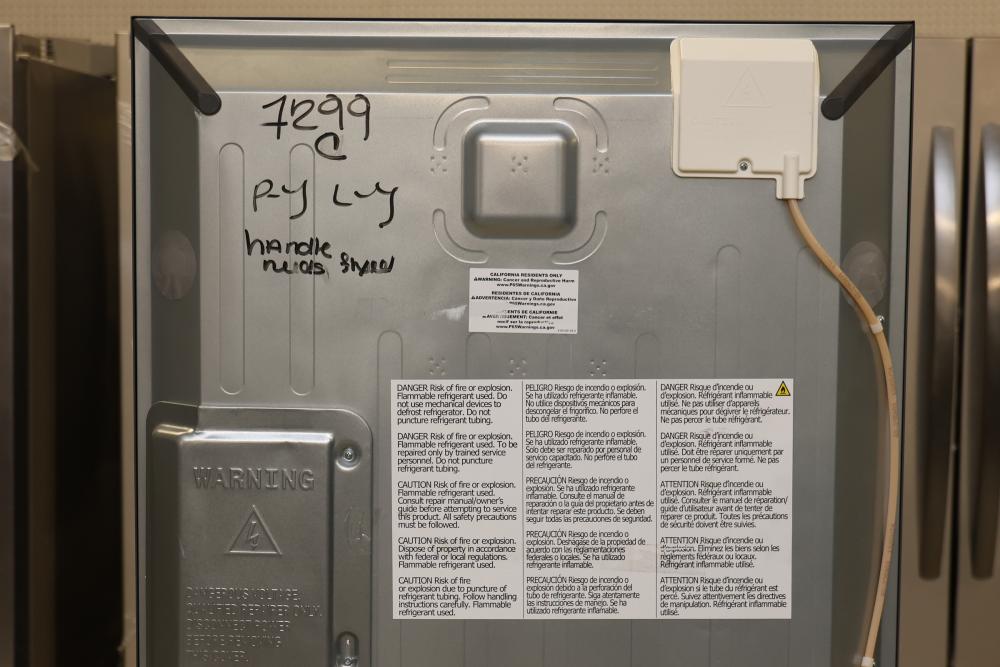 7299
C
P-Y L-Y
handle
needs
CALIFORNIA RESIDENTS ONLY
WARNING: Cancer and Reproductive Harm
www.P65Warnings.ca.gov
RESIDENTES DE CALIFORNIA
ADVERTENCIA: Cancer y Daño Reproductivo
P65Warnings.ca.gov
DE CALIFORNIE
Cancer et effet
nocif sur la
www.P65Warnings.ca.gov
DANGER Risk of fire or explosion.
Flammable refrigerant used. Do
not use mechanical devices to
defrost refrigerator. Do not
puncture refrigerant tubing.
DANGER Risk of fire or explosion.
Flammable refrigerant used. To be
repaired only by trained service
personnel. Do not puncture
refrigerant tubing.
CAUTION Risk of fire or explosion.
Flammable refrigerant used.
Consult repair manual/owner's
guide before attempting to service
this product. All safety precautions
must be followed.
CAUTION Risk of fire or explosion.
Dispose of property in accordance
with federal or local regulations.
Flammable refrigerant used.
CAUTION Risk of fire
or explosion due to puncture of
refrigerant tubing. Follow handling
instructions carefully. Flammable
refrigerant used.
PELIGRO Riesgo de incendio o explosión.
Se ha utilizado refrigerante inflamable.
No utilice dispositivos mecánicos para
descongelar el frigorífico. No perfore el
tubo del refrigerante.
PELIGRO Riesgo de incendio o explosión.
Se ha utilizado refrigerante inflamable.
Solo debe ser reparado por personal de
servicio capacitado. No perfore el tubo
del refrigerante.
PRECAUCIÓN Riesgo de incendio o
explosión. Se ha utilizado refrigerante
inflamable. Consulte el manual de
reparación o la guía del propietario antes de
intentar reparar este producto. Se deben
seguir todas las precauciones de seguridad.
PRECAUCIÓN Riesgo de incendio o
explosión. Deshágase de la propiedad de
acuerdo con las reglamentaciones
federales o locales. Se ha utilizado
refrigerante inflamable.
PRECAUCIÓN Riesgo de incendio o
explosión debido a la perforación del
tubo de refrigerante. Siga atentamente
las instrucciones de manejo. Se ha
utilizado refrigerante inflamable.
DANGER Risque d'incendie ou
d'explosion. Réfrigérant inflammable
utilisé. Ne pas utiliser d'appareils
mécaniques pour dégivrer le réfrigérateur.
Ne pas percer le tube réfrigérant.
DANGER Risque d'incendie ou
d'explosion. Réfrigérant inflammable
utilisé. Doit être réparer uniquement par
un personnel de service formé. Ne pas
percer le tube réfrigérant.
ATTENTION Risque d'incendie ou
d'explosion. Réfrigérant inflammable
utilisé. Consulter le manuel de réparation/
guide d'utilisateur avant de tenter de
réparer ce produit. Toutes les précautions
de sécurité doivent être suivies.
ATTENTION Risque d'incendie ou
d'explosion. Eliminez les biens selon les
règlements fédéraux ou locaux.
Réfrigérant inflammable utilisé.
ATTENTION Risque d'incendie ou
d'explosion si le tube du réfrigérant est
percé. Suivez attentivement les directives
de manipulation. Réfrigérant inflammable
utilisé.
WARNING
DANGEROUS VOLTAGE.
QUALIFIED REPAIRER ONLY.
DISCONNECT POWER
BEFORE REMOVING
THIS COVER.